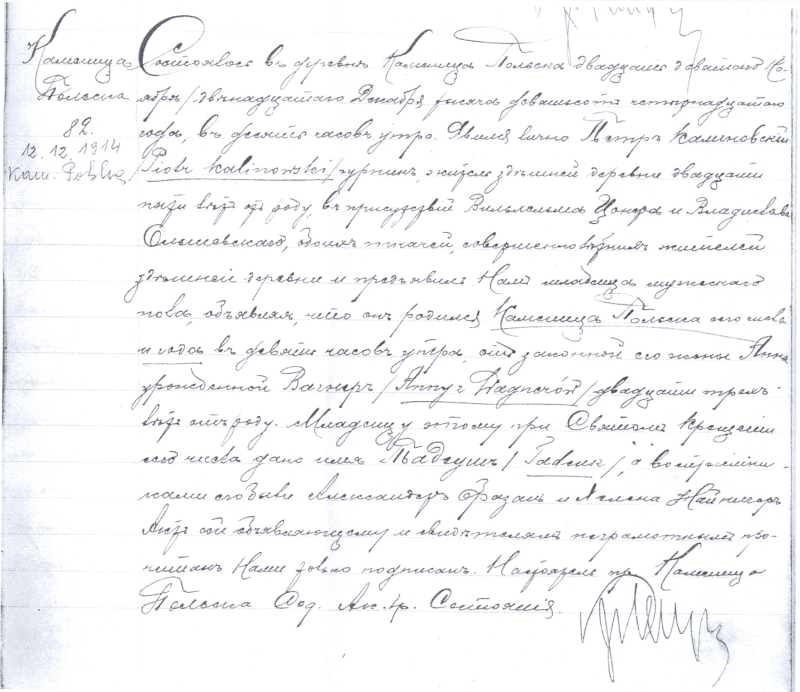 Каменица
Польска
82.
12.12.1914
Kam. Polska
Состоялось въ деревнѣ Каменица Польска двадцать девятаго Но-
ября /двѣнадцатаго Декабря/ тысяча девятьсотъ четырнадцатаго
года, въ десять часовъ утра. Явился лично Петръ Калиновскій
/Piotr Kalinowski/ житель здѣшней деревни двадцати
пяти лѣтъ отъ роду, въ присутствіи Вильгельма и Владислава
Ольшевскаго, обоихъ ткачей, совершеннолѣтнихъ жителей
здѣшней деревни и предъявилъ Намъ младенца мужескаго
пола, объявляя, что онъ родился Каменица Польска сего числа
и года въ девять часовъ утра, отъ законной его жены Анны
урожденной Вагнеръ /Anny z Wagnerów/ двадцати трехъ
лѣтъ отъ роду. Младенцу этому при Святомъ Крещеніи
сего числа дано имя Тадеушъ /Tadeusz/, а воспріемни-
ками его были Александеръ и Хелена
Актъ сей объявляющему и свидѣтелямъ неграмотнымъ про-
читанъ Нами только подписанъ. Настоятель пр. Каменица
Польска Сод. Ак. Гр. Состоянія.